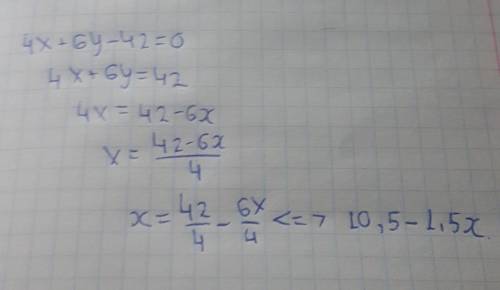 4x+6y-42=0
4x+6y=42
4x=42-6x
x=\frac{42-6x}{4}
x=\frac{42}{4}-\frac{6x}{4}<=> 10,5-1,5x